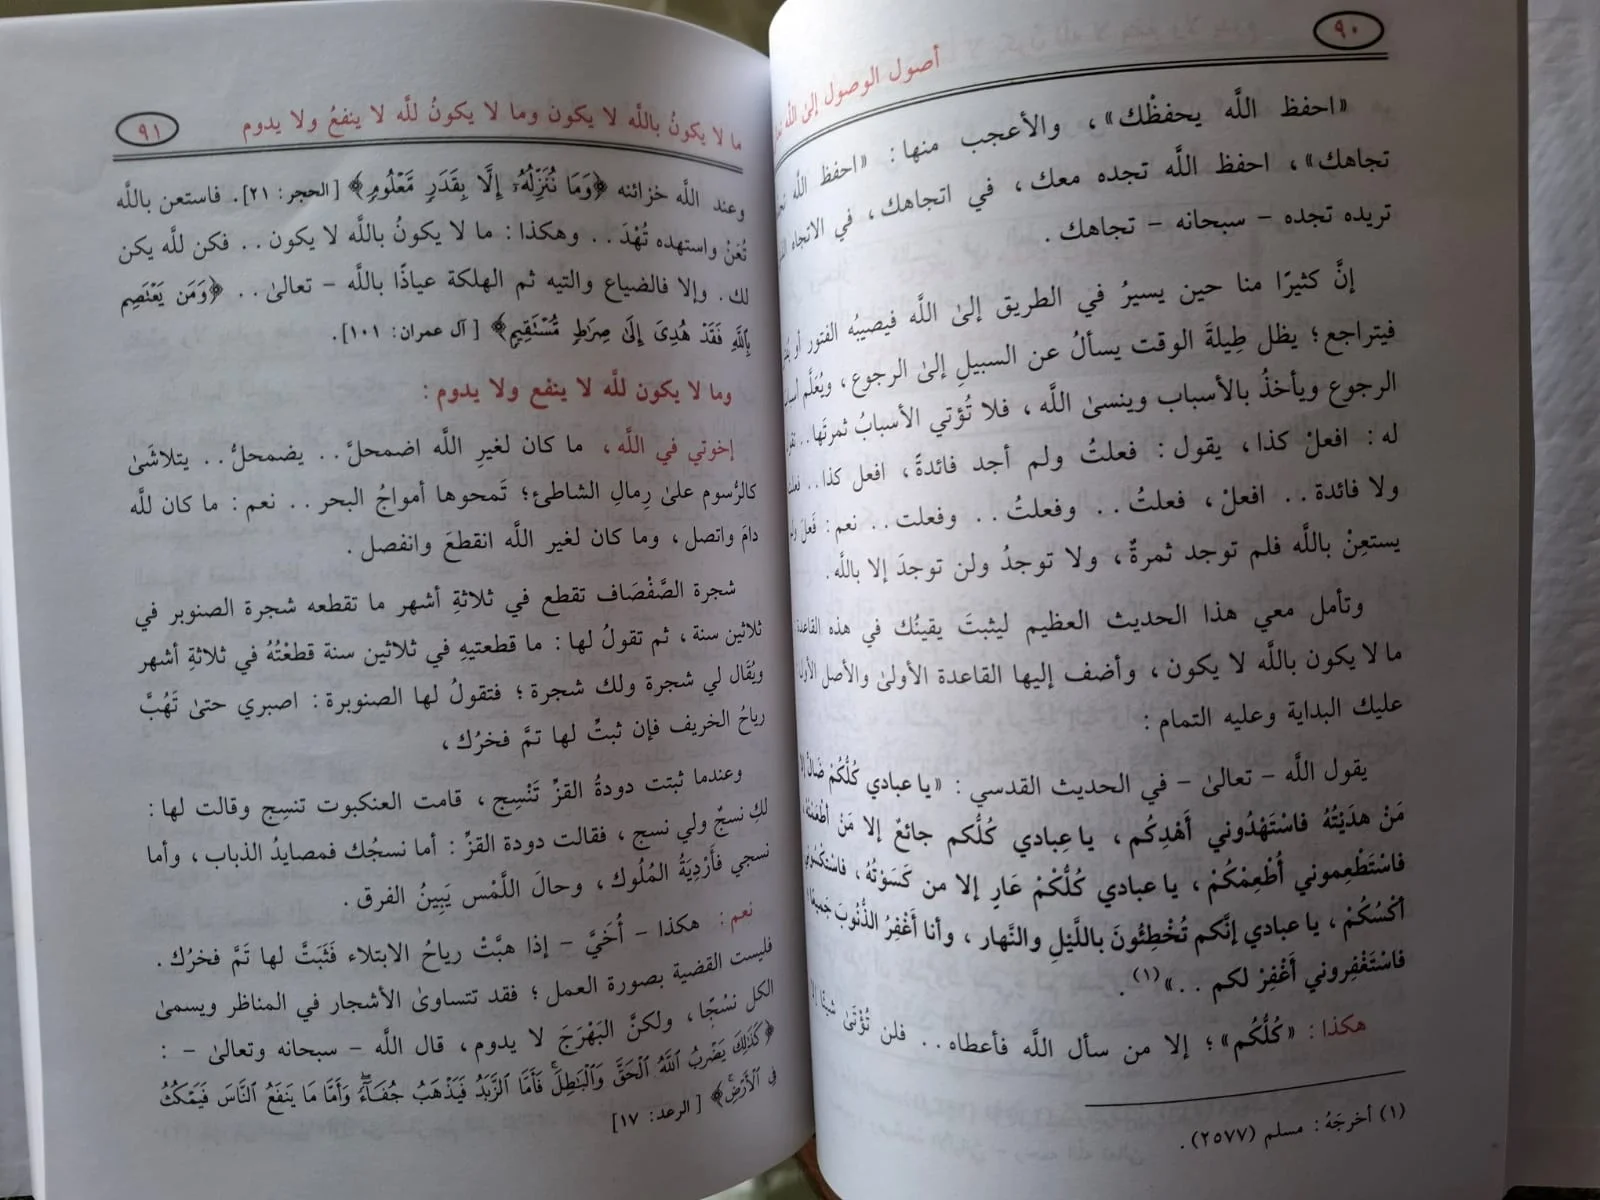 ٩٠
أصول الوصول إلى الله
«احفظ اللَّه يحفظْك»، والأعجب منها: «احفظ اللَّه
تجاهك»، احفظ اللَّه تجده معك، في اتجاهك، في الاتجاه
تريده تجده - سبحانه - تجاهك.
إنَّ كثيرًا منا حين يسيرُ في الطريق إلىٰ اللَّه فيصيبُه الفتور أو
فيتراجع؛ يظل طِيلةَ الوقت يسألُ عن السبيلِ إلىٰ الرجوع، ويُعَلَّم
الرجوع ويأخذُ بالأسباب وينسىٰ اللَّه، فلا تُؤتي الأسبابُ ثمرتَها..
له: افعلْ كذا، يقول: فعلتُ ولم أجد فائدةً، افعل كذا..
ولا فائدة.. افعلْ، فعلتُ.. وفعلتُ.. وفعلت.. نعم: فَعلَ
يستعِنْ باللَّه فلم توجد ثمرةٌ، ولا توجدُ ولن توجدَ إلا باللَّه.
وتأمل معي هذا الحديث العظيم ليثبتَ يقينُك في هذه القاعدة
ما لا يكون باللَّه لا يكون، وأضف إليها القاعدة الأولىٰ والأصل
عليك البداية وعليه التمام:
يقول اللَّه - تعالىٰ - في الحديث القدسي: «يا عبادي كُلُّكُمْ ضَالٌ إلا
مَنْ هدَيْتُهُ فاسْتَهْدُوني أَهْدِكُم، يا عِبادي كُلُّكم جائعٌ إلا مَنْ أطْعَمْتُهُ
فاسْتَطْعِموني أُطْعِمْكُمْ، يا عبادي كُلُّكُمْ عَارٍ إلا من كَسَوْتُهُ، فاسْتَكْسُوني
أكْسُكُمْ، يا عبادي إنَّكم تُخْطِئُونَ باللَّيْلِ والنَّهار، وأنا أَغْفِرُ الذُّنُوبَ جَميعًا
فاسْتَغْفِروني أَغْفِرْ لكم..»(١).
هكذا: «كُلُّكُم»؛ إلا من سأل اللَّه فأعطاه.. فلن تُؤْتَىٰ شيئًا إلا
(١) أخرجَهُ: مسلم (٢٥٧٧).
ما لا يكونُ باللَّه لا يكون وما لا يكونُ للَّه لا ينفعُ ولا يدوم
٩١
وعند اللَّه خزائنه ﴿وَمَا نُنَزِّلُهُۥٓ إِلَّا بِقَدَرٍ مَّعْلُومٍ﴾ [الحجر: ٢١]. فاستعن باللَّه
تُعَنْ واستهده تُهْدَ.. وهكذا: ما لا يكونُ باللَّه لا يكون.. فكن للَّه يكن
لك. وإلا فالضياع والتيه ثم الهلكة عياذًا باللَّه - تعالىٰ.. ﴿وَمَن يَعْتَصِم
بِٱللَّهِ فَقَدْ هُدِىَ إِلَىٰ صِرَٰطٍ مُّسْتَقِيمٍ﴾ [آل عمران: ١٠١].
وما لا يكون للَّه لا ينفع ولا يدوم:
إخوتي في اللَّه، ما كان لغيرِ اللَّه اضمحلَّ.. يضمحلُّ.. يتلاشَىٰ
كالرُّسوم علىٰ رِمالِ الشاطئ؛ تَمحوها أمواجُ البحر.. نعم: ما كان للَّه
دامَ واتصل، وما كان لغير اللَّه انقطعَ وانفصل.
شجرة الصَّفْصَاف تقطع في ثلاثةِ أشهر ما تقطعه شجرة الصنوبر في
ثلاثين سنة، ثم تقولُ لها: ما قطعتيهِ في ثلاثين سنة قطعْتُهُ في ثلاثةِ أشهر
ويُقَال لي شجرة ولك شجرة؛ فتقولُ لها الصنوبرة: اصبري حتىٰ تَهُبَّ
رياحُ الخريف فإن ثبتِّ لها تمَّ فخرُك،
وعندما ثبتت دودةُ القزِّ تَنْسِج، قامت العنكبوت تنسِج وقالت لها:
لكِ نسجٌ ولي نسج، فقالت دودة القزِّ: أما نسجُك فمصايدُ الذباب، وأما
نسجي فأَرْدِيَةُ المُلُوك، وحالَ اللَّمْس يَبِينُ الفرق.
نعم: هكذا - أُخَيَّ - إذا هبَّتْ رياحُ الابتلاء فَثَبَتَّ لها تَمَّ فخرُك.
فليست القضية بصورة العمل؛ فقد تتساوىٰ الأشجار في المناظر ويسمىٰ
الكل نسْجًا، ولكنَّ البَهْرَجَ لا يدوم، قال اللَّه - سبحانه وتعالىٰ - :
﴿كَذَٰلِكَ يَضْرِبُ ٱللَّهُ ٱلْحَقَّ وَٱلْبَٰطِلَ ۚ فَأَمَّا ٱلزَّبَدُ فَيَذْهَبُ جُفَآءً ۖ وَأَمَّا مَا يَنفَعُ ٱلنَّاسَ فَيَمْكُثُ
فِى ٱلْأَرْضِ﴾ [الرعد: ١٧]